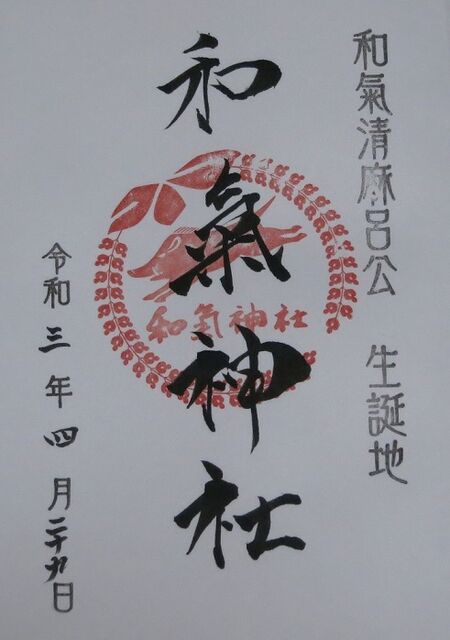 和氣清麻呂公 生誕地
和氣神社
和氣神社
令和三年四月二十九日